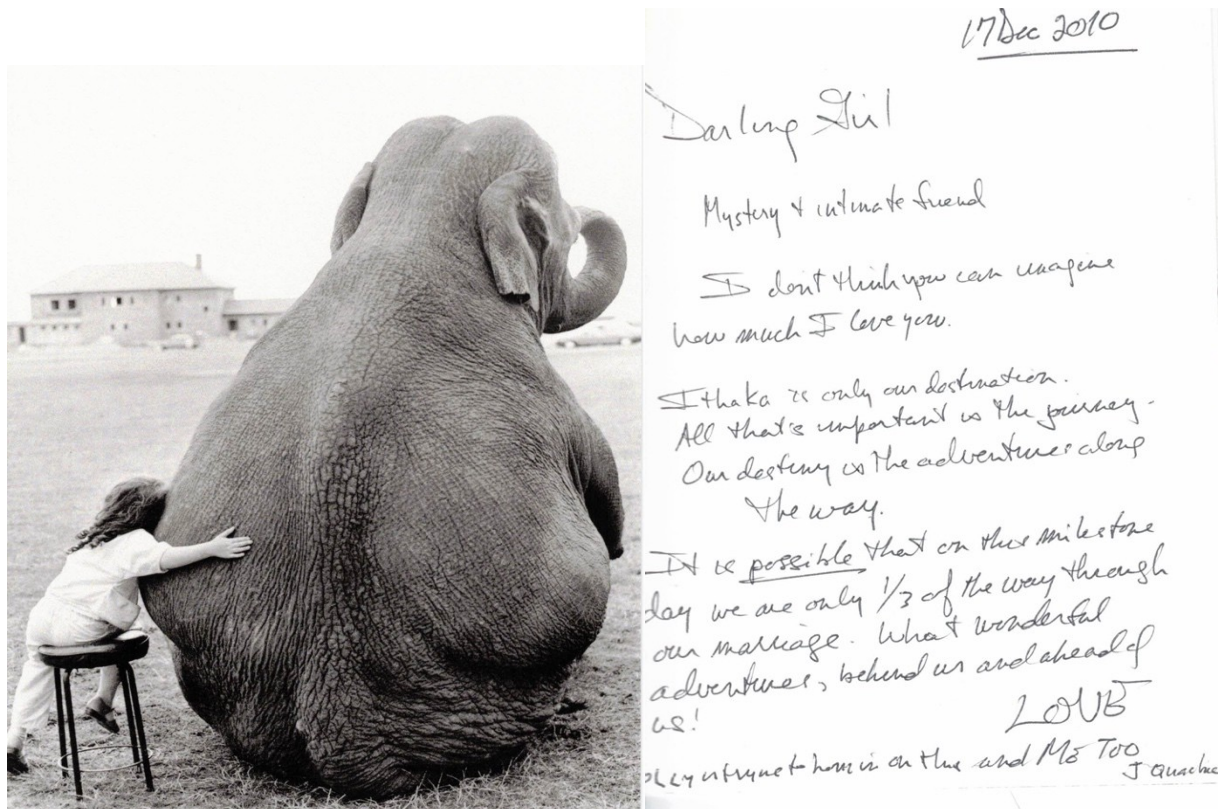 17 Dec 2010
Darling Girl
Mystery & intimate friend
I don't think you can imagine
how much I love you.
Ithaka is only our destination.
All that's important is the journey.
Our destiny is the adventures along
the way.
It is possible that on this milestone
day we are only 1/3 of the way through
our marriage. What wonderful
adventures, behind us and ahead of
us!
LOVE
on this and Me Too
J